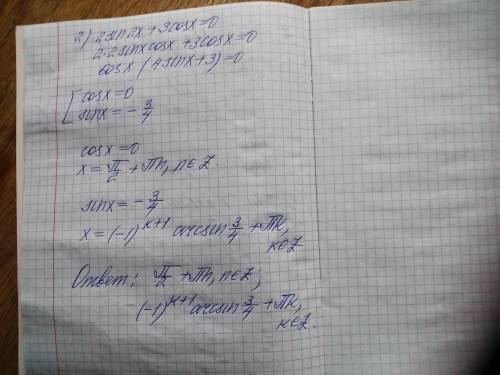 2) 2sin2x + 3cosx = 0
2·2sinxcosx + 3cosx = 0
cosx (4sinx + 3) = 0
[cosx = 0
sinx = - 3/4
cosx = 0
x = π/2 + πn, n∈Z
sinx = - 3/4
x = (-1)^(k+1) arcsin 3/4 + πk,
k∈Z
Ответ: π/2 + πn, n∈Z,
(-1)^(k+1) arcsin 3/4 + πk,
k∈Z.